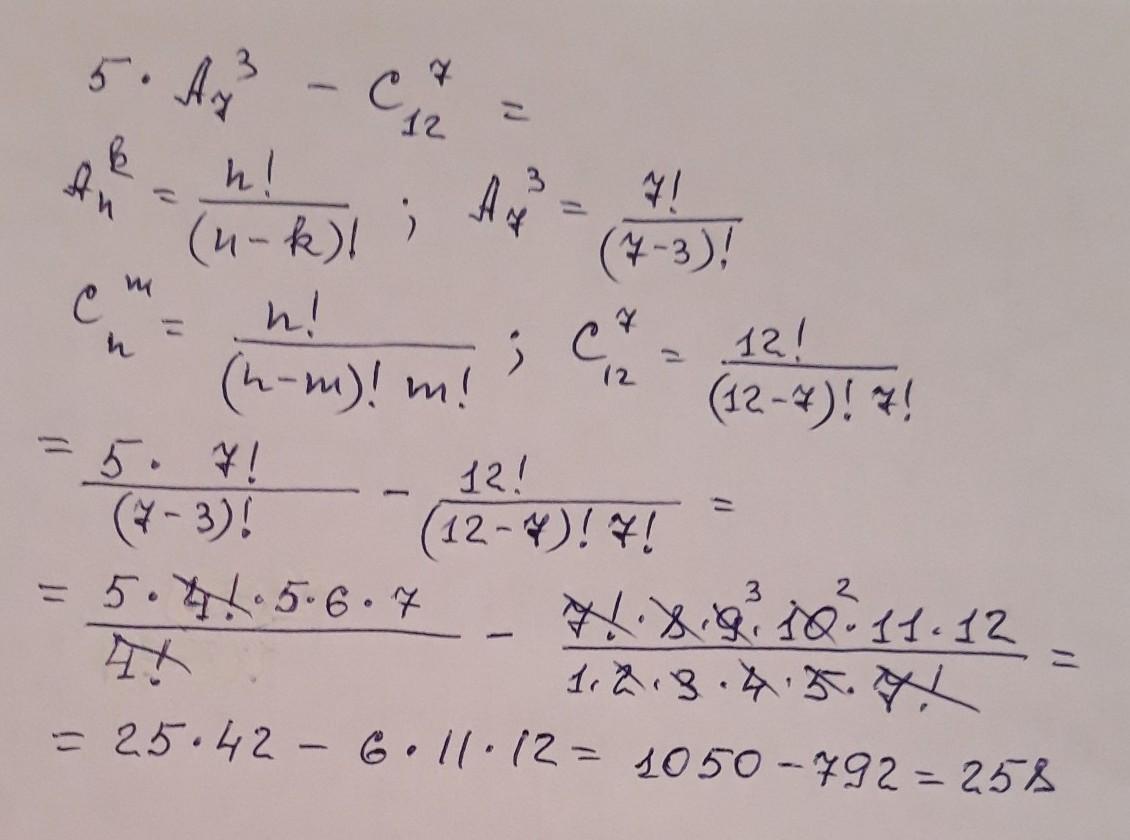 5 · A₇³ − C₁₂⁷ =
Aₙᵏ = n! / (n − k)! ; A₇³ = 7! / (7 − 3)!
Cₙᵐ = n! / (n − m)! m! ; C₁₂⁷ = 12! / (12 − 7)! 7!
= 5 · 7! / (7 − 3)! − 12! / (12 − 7)! 7! =
= 5 · 4! · 5 · 6 · 7 / 4! − 7! · 8 · 9 ³ · 10 ² · 11 · 12 / 1 · 2 · 3 · 4 · 5 · 7! =
= 25 · 42 − 6 · 11 · 12 = 1050 − 792 = 258